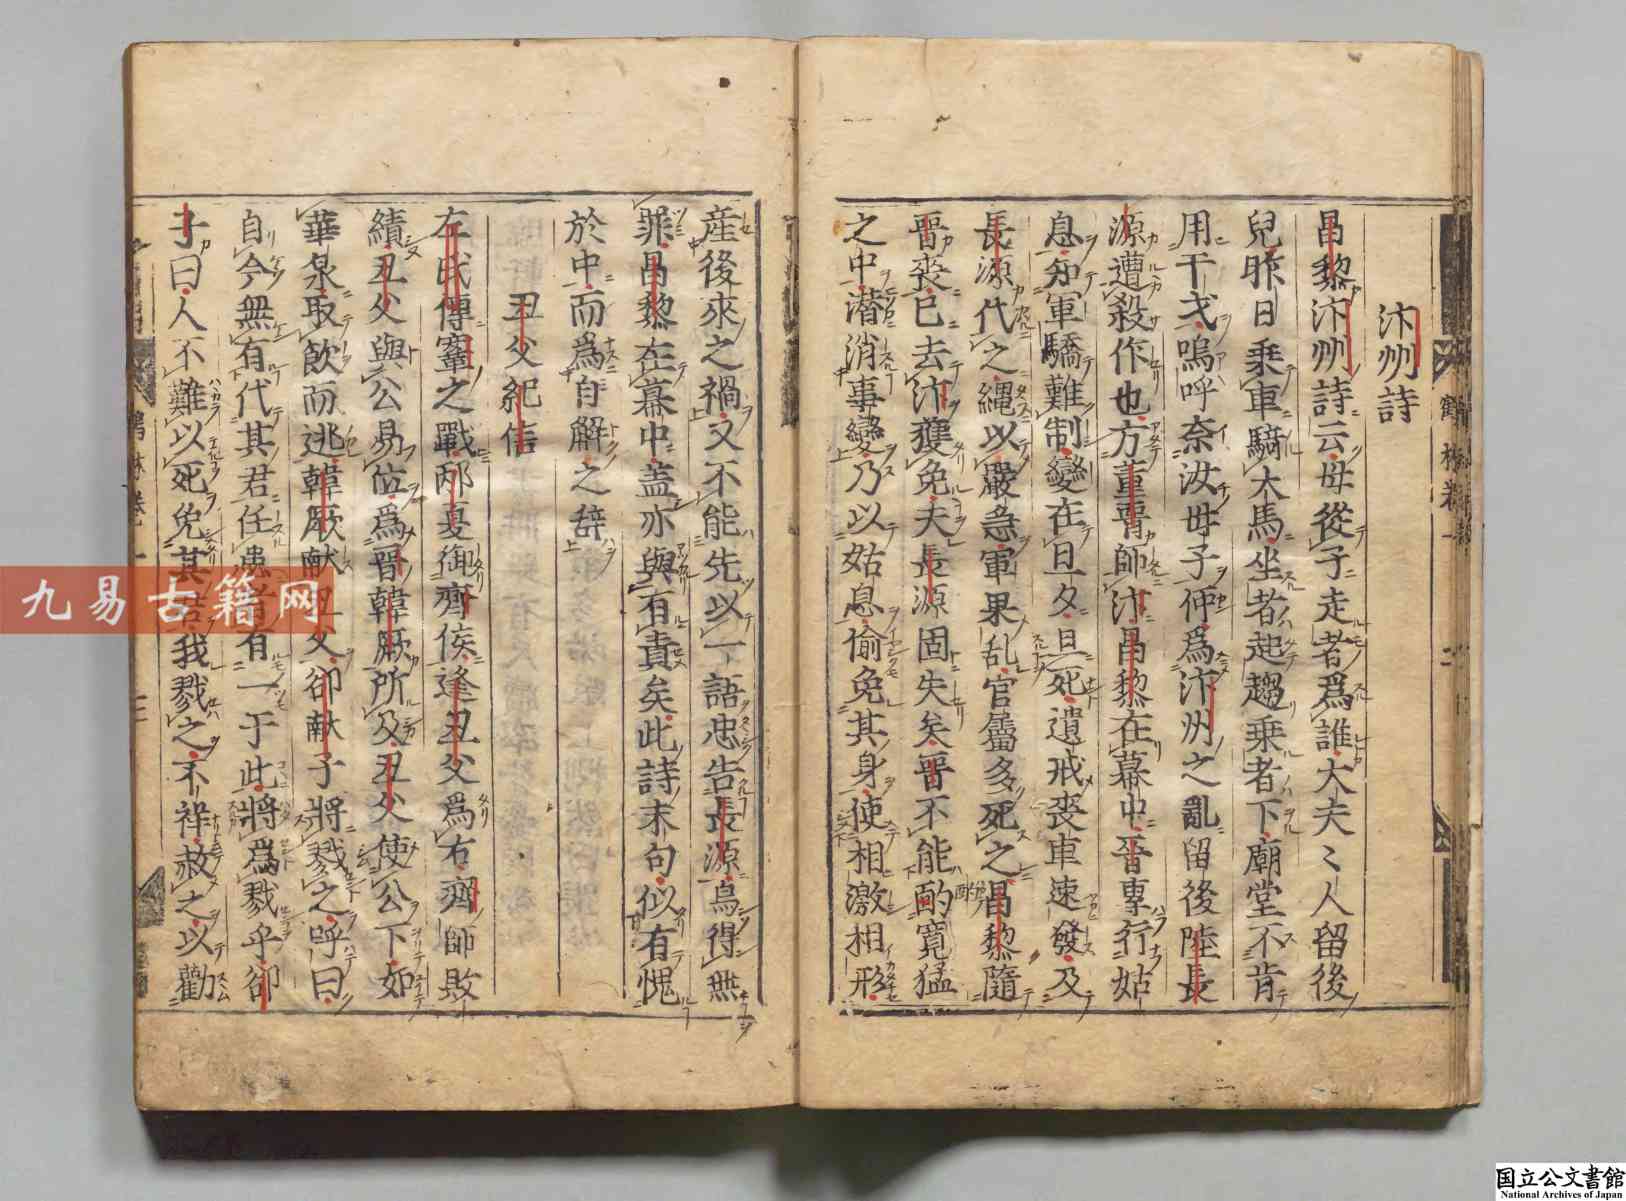 汴州詩
昌黎汴州詩云母從子走者爲誰大夫〻人留後
兒昨日乘車騎大馬坐者起趨乘者下廟堂不肯
用干戈嗚呼奈汝母子何爲汴州之亂留後陸長
源遭殺作也方董晋帥汴昌黎在幕中晋專行姑
息知軍驕難制變在旦夕旦死遺戒喪車速發及
長源代之繩以嚴急軍果乱官屬多死之昌黎隨
晋喪已去汴獲免夫長源固失矣晋不能酌寛猛
之中潜消事變乃以姑息偷免其身使相激相形
産後來之禍又不能先以一語忠告長源烏得無
罪昌黎在幕中盖亦與有責矣此詩末句似有愧
於中而爲自解之辞
丑父紀信
左氏傳鞌之戰邴夏御齊侯逢丑父爲右齊師敗
績丑父與公易位爲晋韓厥所及丑父使公下如
華泉取飲而逃韓厥献丑父郤献子將戮之呼曰
自今無有代其君任患者有一于此將爲戮乎郤
子曰人不難以死免其君我戮之不祥赦之以勸
鶴林卷一
九易古籍网
国立公文書館
National Archives of Japan